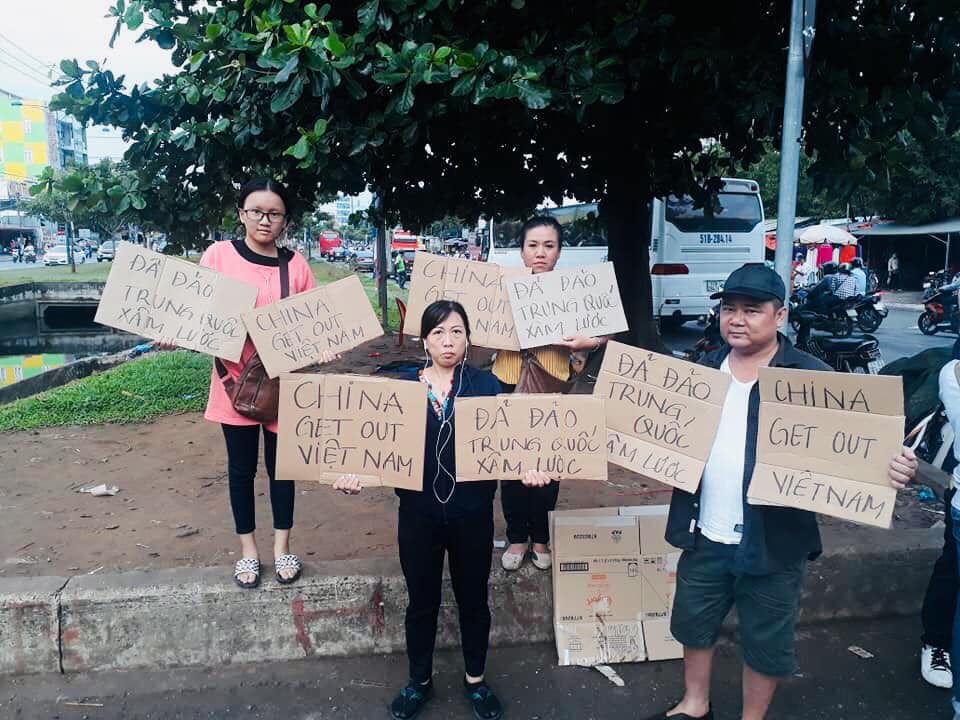 ĐẢ ĐẢO
TRUNG QUỐC
XÂM LƯỚC
CHINA
GET OUT
VIỆT NAM
CHINA
GET OUT
VIỆT NAM
ĐẢ ĐẢO
TRUNG QUỐC
XÂM LƯỚC
CHINA
GET OUT
VIỆT NAM
ĐẢ ĐẢO
TRUNG QUỐC
XÂM LƯỚC
ĐẢ ĐẢO
TRUNG
QUỐC
XÂM LƯỚC
CHINA
GET OUT
VIỆTNAM
51B-284.14